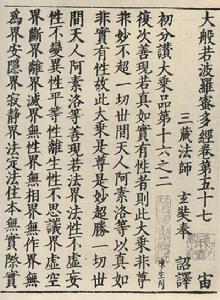 大般若波羅蜜多經卷第五十七　宙
三藏法師　玄奘奉　詔譯
初分讚大乘品第十六之二
復次善現若真如實有性者則此大乘非尊
非妙不超一切世間天人阿素洛等以真如
非實有性故此大乘是尊是妙超勝一切世
間天人阿素洛等善現若法界法性不虛妄
性不變異性平等性離生性不思議界虛空
界斷界離界滅界無性界無相界無作界無
為界安隱界寂靜界法定法住本無實際實